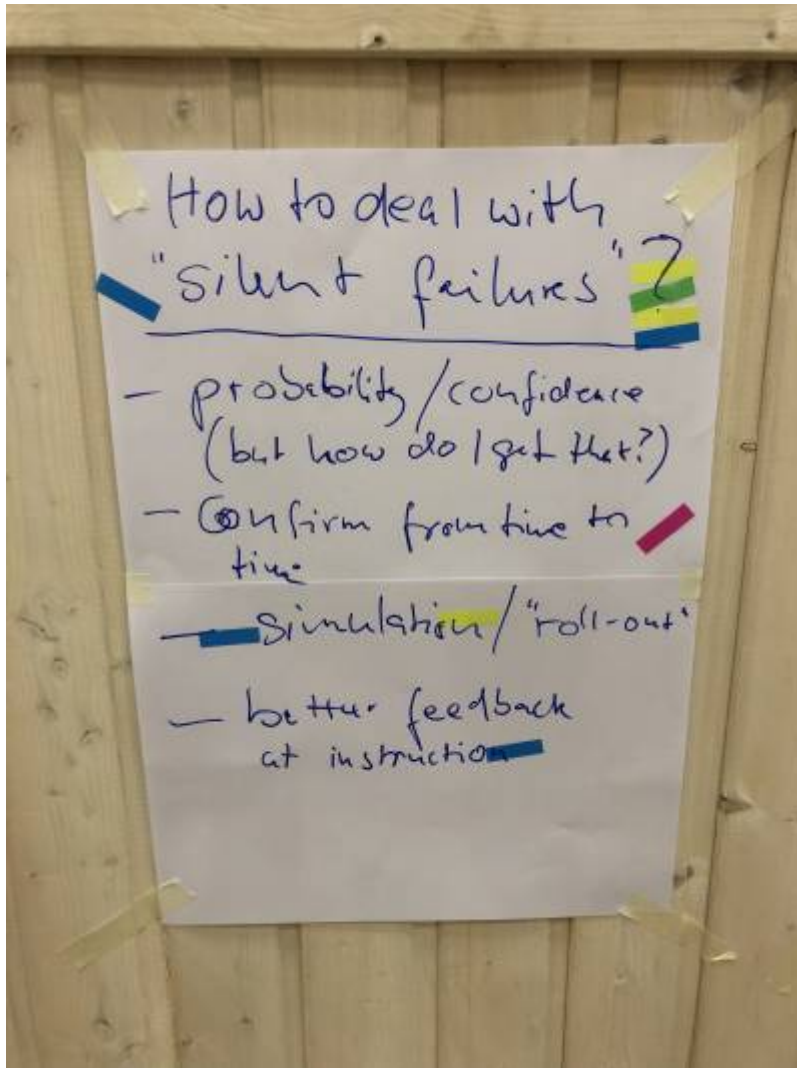 How to deal with
"silent failures"?
- probability/confidence
(but how do I get that?)
- Confirm from time to
time
- simulation/"roll-out"
- better feedback
at instruction